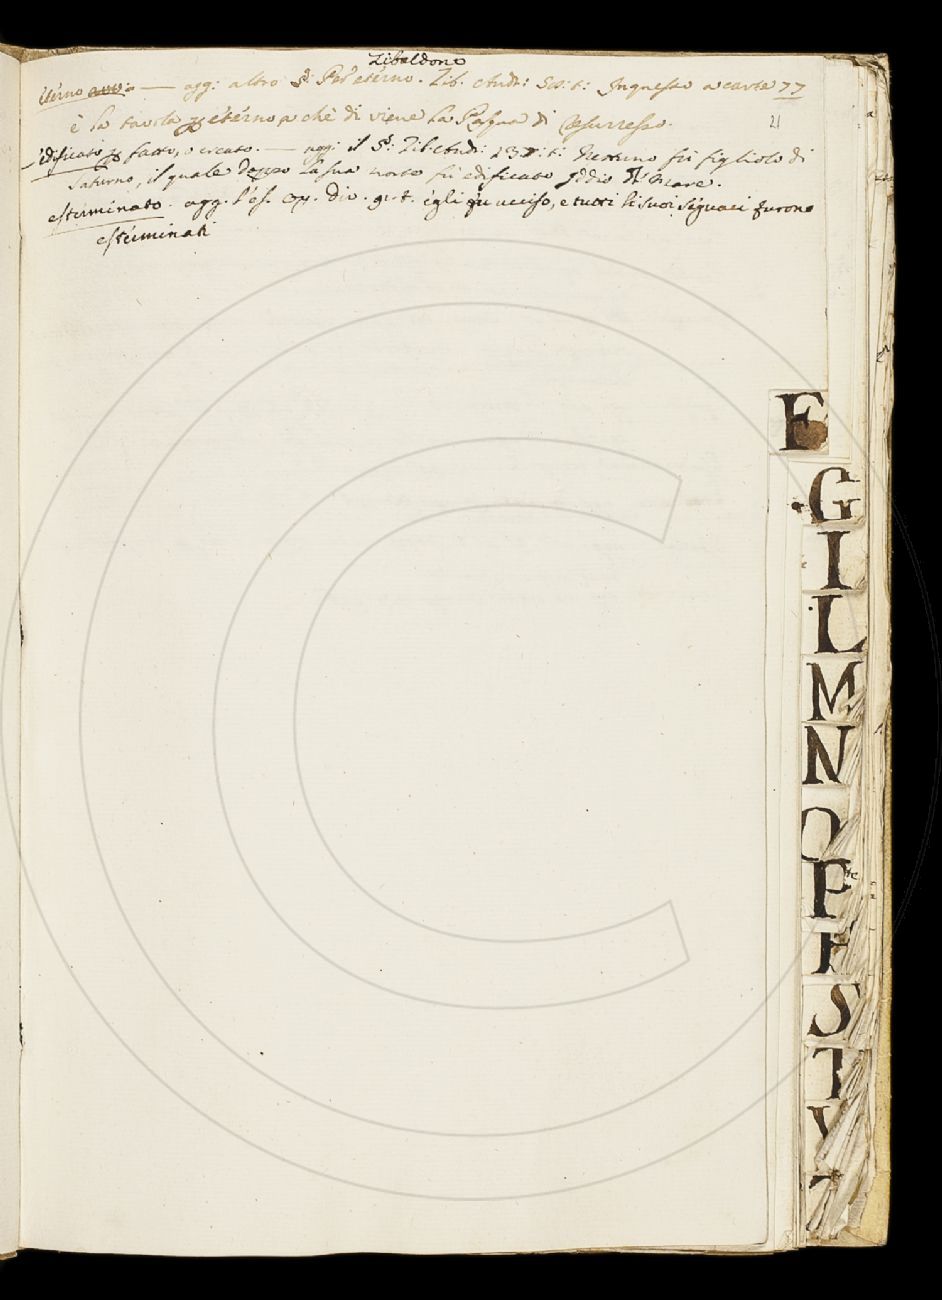 Zibaldone
éterno avv: — agg: altro §: Per etérno. Zib. Andr: 50: t: In questo a carte 77
è la tavola p etérno a chè dì viene la Pasqua di Resurresso.
21
édificato p fatto, o creato. — agg: il §: Zib. Andr: 137: t: Nettuno fù figliolo di
Saturno, il quale doppo la sua morte fù edificato Iddio del Mare.
esterminato. agg. l'es. op. div. 91. t. égli fu ucciso, e tutti li suoi séguaci furono
estérminati
F
G
I
L
M
N
O
P
R
S
T
V
Z